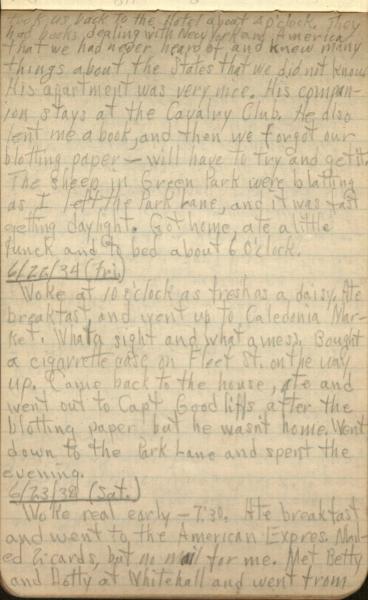 took us back to the Hotel about 4 o'clock. They
had books, dealing with New York and America
that we had never heard of and knew many
things about the States that we did not know.
His apartment was very nice. His compan-
ion stays at the Cavalry Club. He also
lent me a book, and then we forgot our
blotting paper – will have to try and get it.
The sheep in Green Park were blatting
as I left the Park Lane, and it was fast
getting daylight. Got home, ate a little
lunch and to bed about 6 o'clock.
6/22/34 (Fri.)
Woke at 10 o'clock as fresh as a daisy. Ate
breakfast, and went up to Caledonia Mar-
ket. What a sight and what a mess. Bought
a cigarette case on Fleet St. on the way
up. Came back to the house, ate and
went out to Capt. Goodliffs, after the
blotting paper but he wasn't home. Went
down to the Park Lane and spent the
evening.
6/23/34 (Sat.)
Woke real early – 7:30. Ate breakfast
and went to the American Expres. Mail-
ed 21 cards, but no mail for me. Met Betty
and Dotty at Whitehall and went from